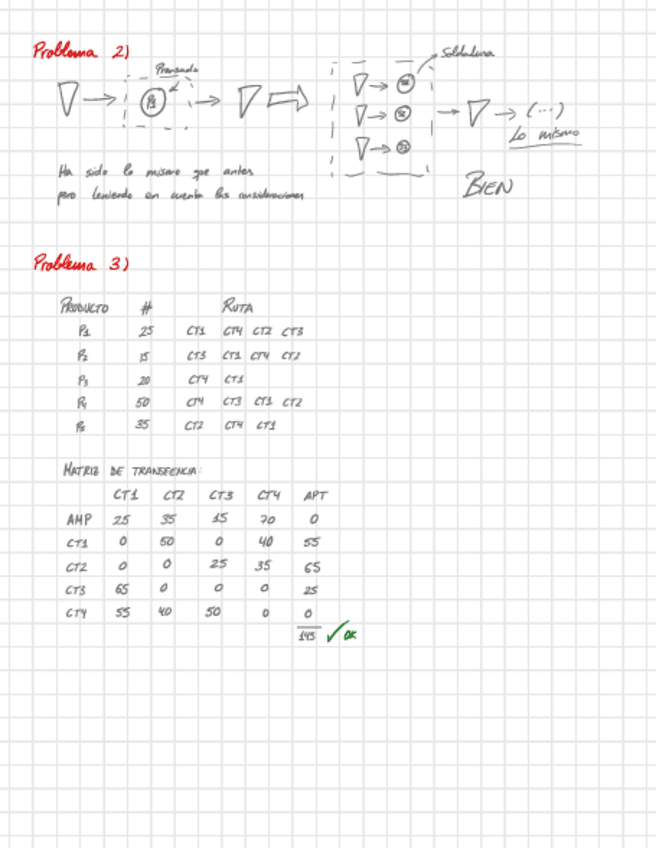 Problema 2)
Prensado
P1
Soldadura
(...)
Lo mismo
Ha sido lo mismo que antes
pero teniendo en cuenta las consideraciones
BIEN
Problema 3)
PRODUCTO # RUTA
P1 25 CT1 CT4 CT2 CT3
P2 15 CT3 CT1 CT4 CT2
P3 20 CT4 CT1
P4 50 CT4 CT3 CT1 CT2
P5 35 CT2 CT4 CT1
MATRIZ DE TRANSFENCIA:
CT1 CT2 CT3 CT4 APT
AMP 25 35 15 70 0
CT1 0 50 0 40 55
CT2 0 0 25 35 65
CT3 65 0 0 0 25
CT4 55 40 50 0 0
145 ✓ OK